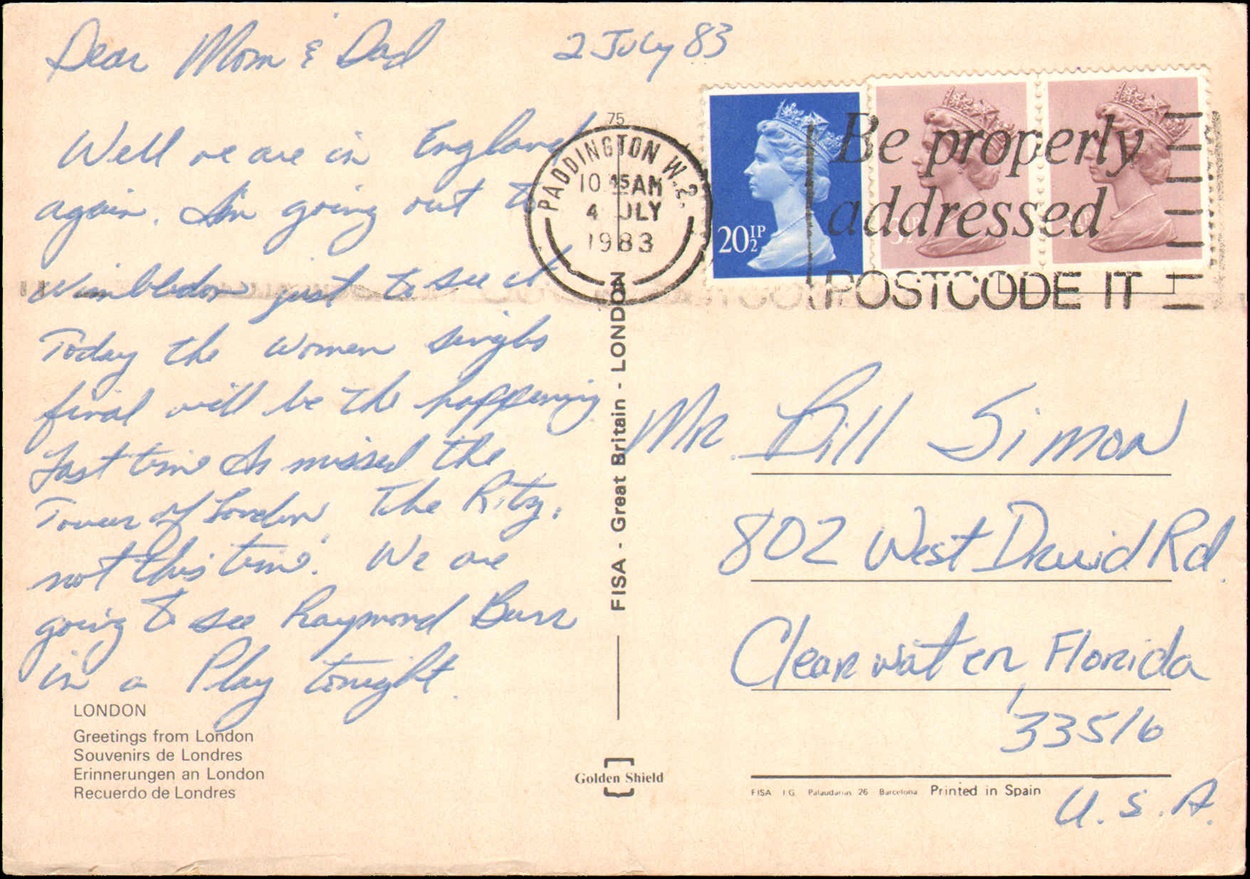 Dear Mom & Dad
2 July 83
Well we are in England
again. Im going out to
Wimbledon just to see it
Today the women singles
final will be the happening
Last time I missed the
Tower of London, The Ritz,
not this time. We are
going to see Raymond Burr
in a Play tonight.
LONDON
Greetings from London
Souvenirs de Londres
Erinnerungen an London
Recuerdo de Londres
75
PADDINGTON W.2.
10.45AM
4 JLY
1983
20½P
3½P
Be properly
addressed
POSTCODE IT
FISA - Great Britain - LONDON
Golden Shield
Mr. Bill Simon
802 West Druid Rd.
Clearwater, Florida
33516
U.S.A.
FISA I.G. Palaudarias 26 Barcelona Printed in Spain